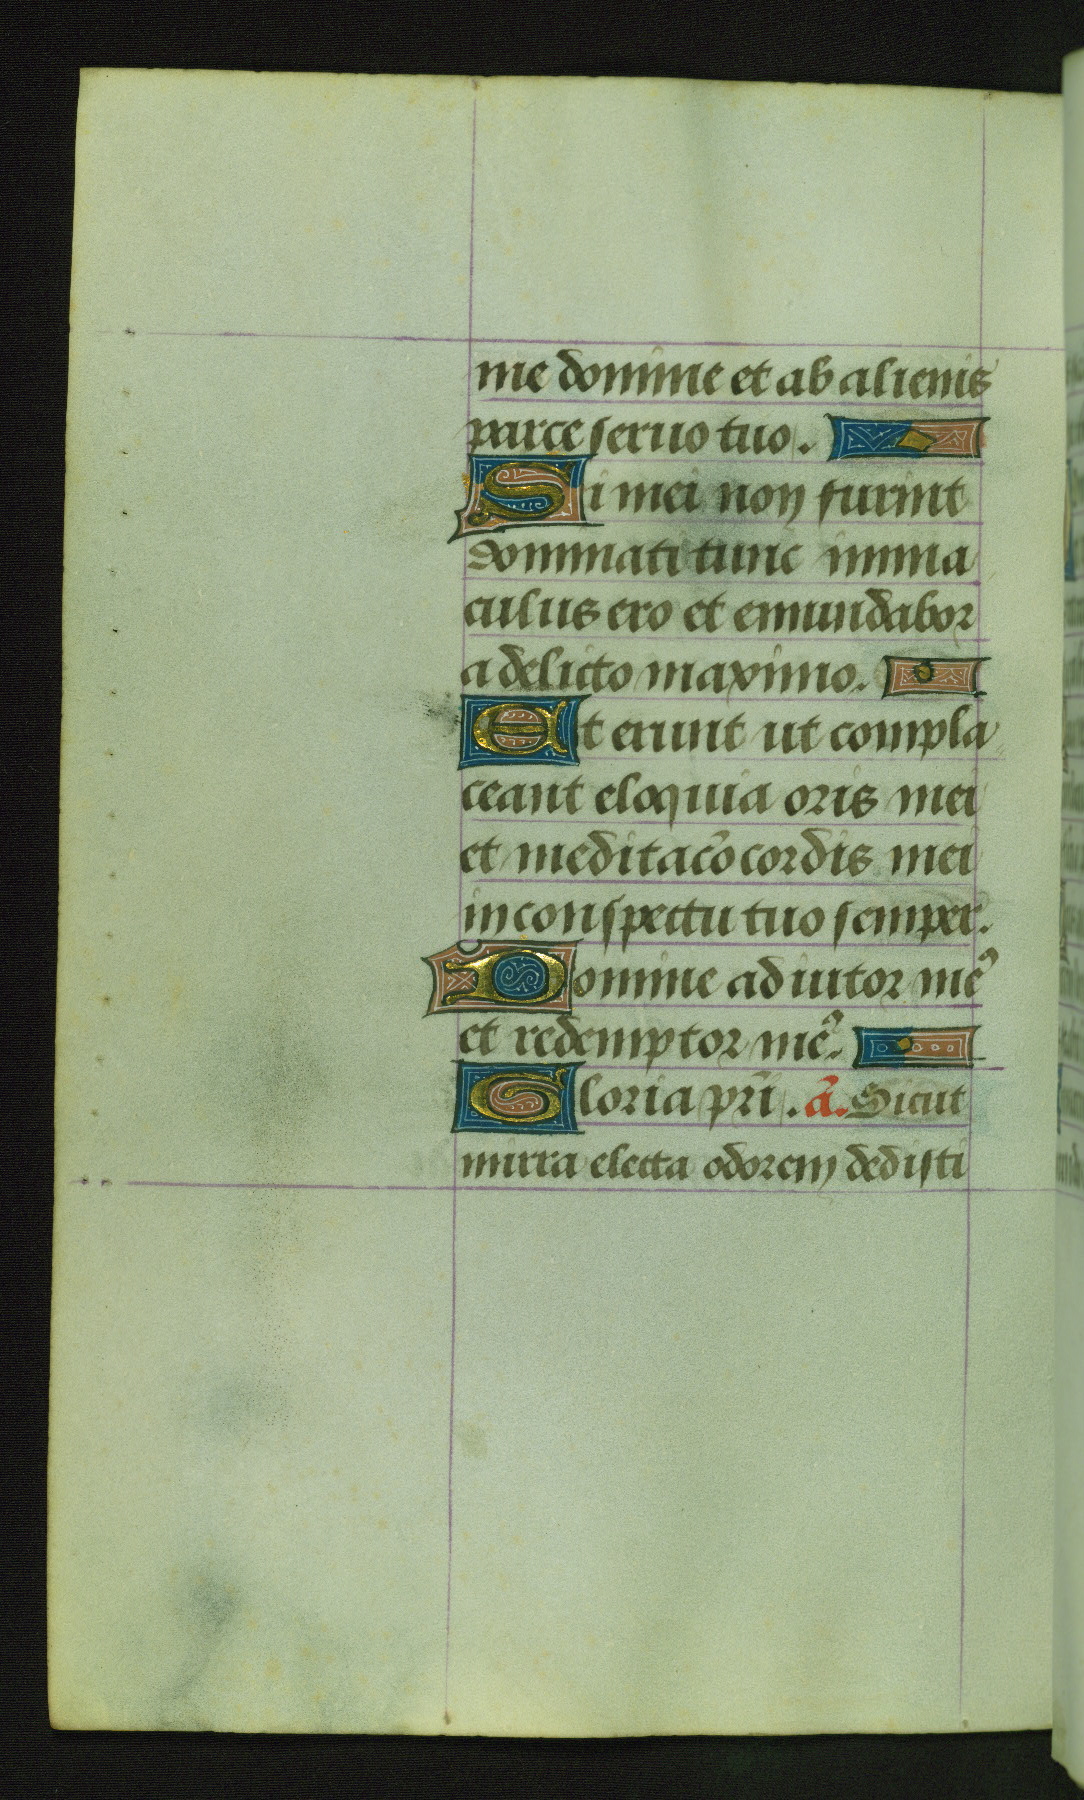 me domine et ab alienis
parce seruo tuo.
Si mei non furint
dominati tunc imma
culus ero et emundabor
a delicto maximo.
Et erunt ut compla
ceant eloquia oris mei
et meditac̃o cordis mei
in conspectu tuo semper.
Domine adiutor me᾽
et redemptor me᾽.
Gloria pr̃i. ã. Sicut
mirra electa odorem dedisti